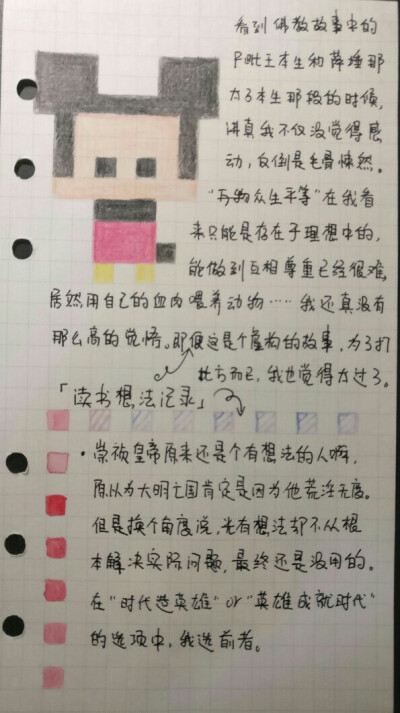 看到佛教故事中的
尸毗王本生和萨埵那
太子本生那段的时候,
讲真我不仅没觉得感
动,反倒是毛骨悚然。
“万物众生平等”在我看
来只能是存在于理想中的,
能做到互相尊重已经很难,
居然用自己的血肉喂养动物……我还真没有
那么高的觉悟。即便这是个虚构的故事,为了打
比方而已,我也觉得太过了。
「读书想法记录」
·崇祯皇帝原来还是个有想法的人啊,
原以为大明亡国肯定是因为他荒淫无度。
但是换个角度说,光有想法却不从根
本解决实际问题,最终还是没用的。
在“时代造英雄”or“英雄成就时代”
的选项中,我选前者。